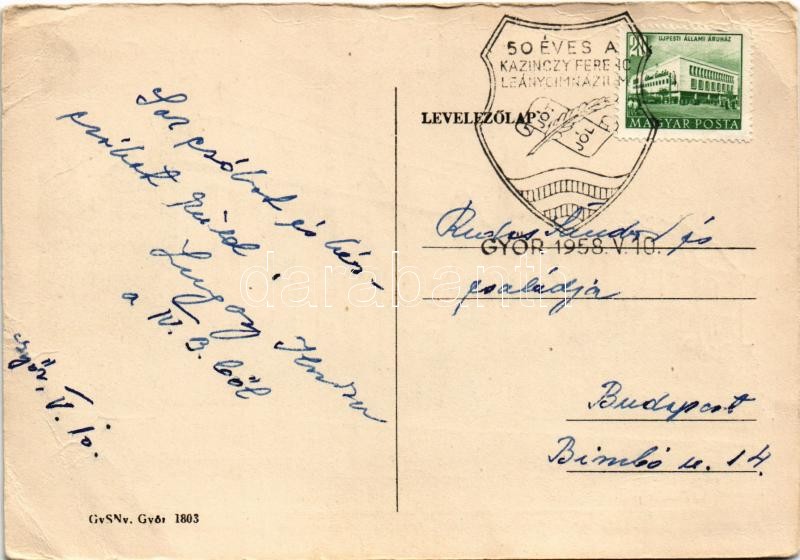 50 ÉVES A
KAZINCZY FERENC
LEÁNYGIMNÁZIUM
JÓL
GYŐR 1958.V.10.
ÚJPESTI ÁLLAMI ÁRUHÁZ
MAGYAR POSTA
LEVELEZŐLAP
Sok csókot és kéz-
csókot küld
Ilona
a IV. B. ből
Győr, V. 10.
Sándor és
családja
Budapest
Bimbó u. 14.
GySNy. Győr 1803
darabanth